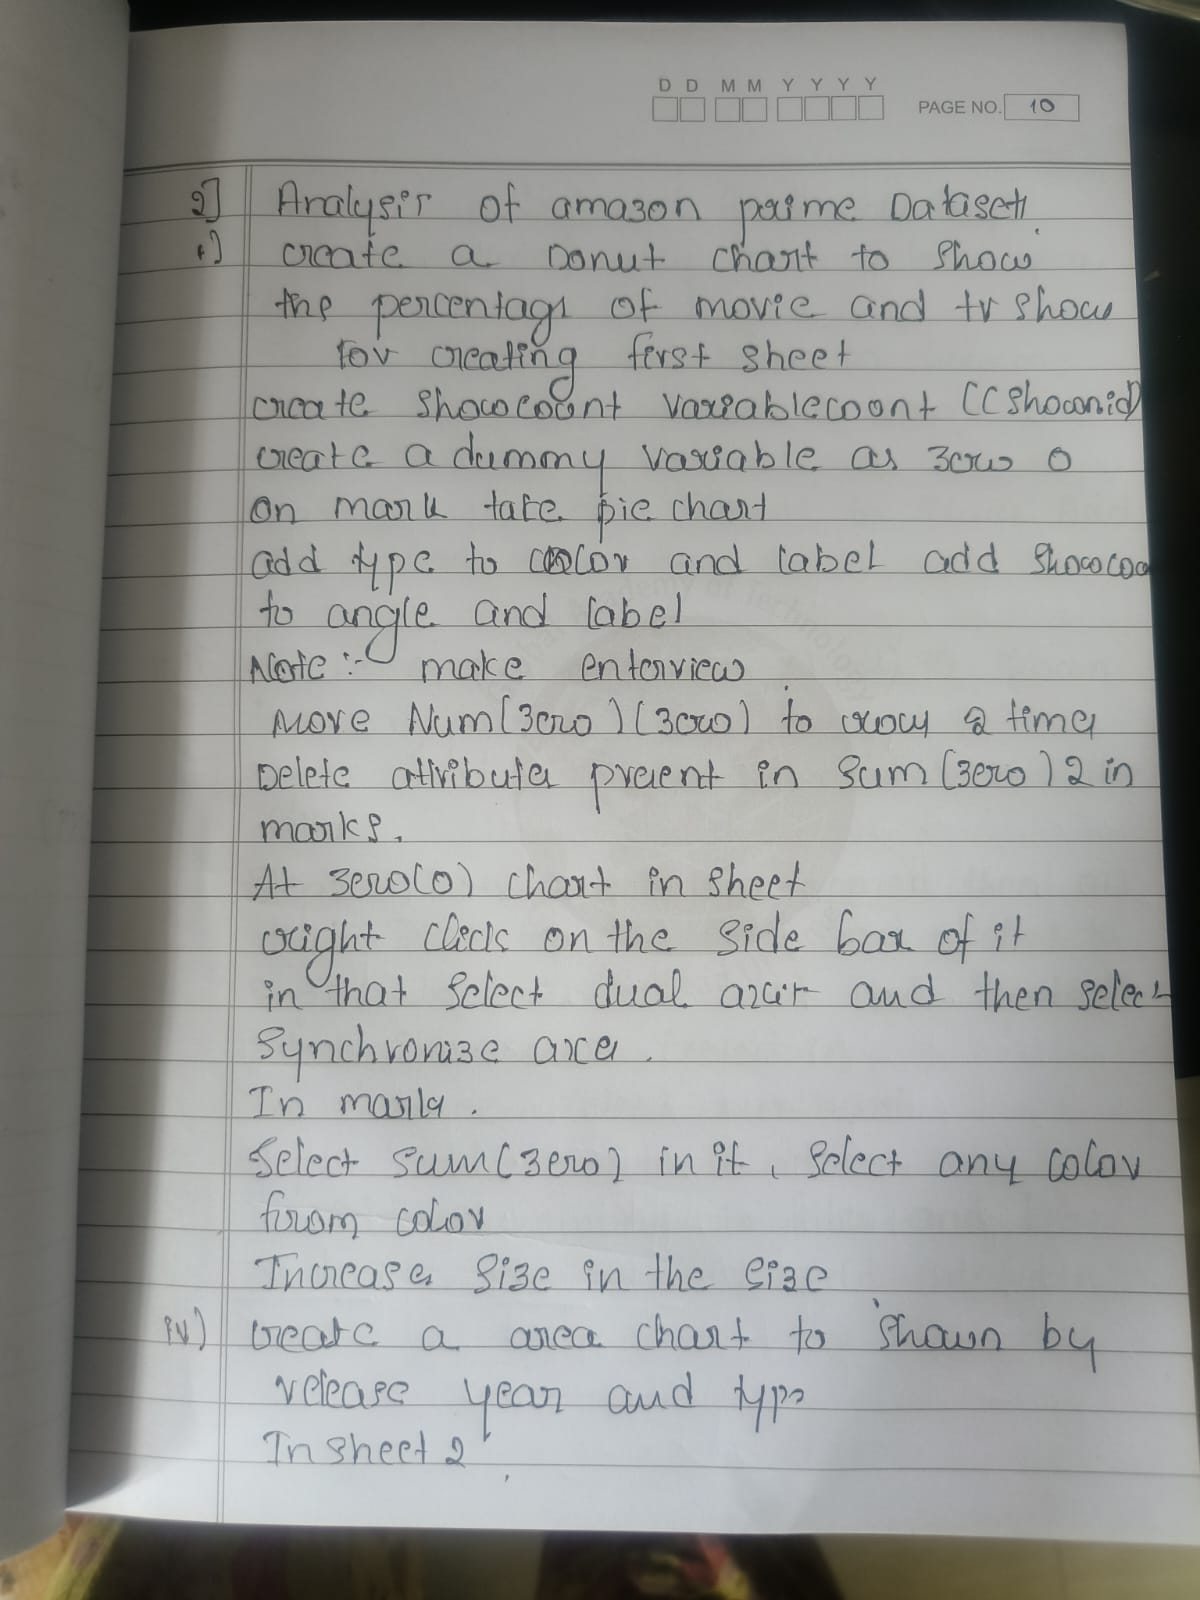 D D M M Y Y Y Y PAGE NO. 10
2] Analysis of amazon prime Dataset
1) create a Donut chart to show
the percentage of movie and tv show
for creating first sheet
create showcount variablecount ((showid)
create a dummy variable as zero 0
on mark take pie chart
add type to color and label add showcou
to angle and label
Note :- make enterview
Move Num(zero)(zero) to row 2 time
Delete attribute present in sum(zero)2 in
marks.
At zero(0) chart in sheet
right click on the side bar of it
in that select dual axis and then select
synchronize axes.
In marks.
select sum(zero) in it, select any color
from color
Increases size in the size
iv) create a area chart to shown by
release year and type
In sheet 2